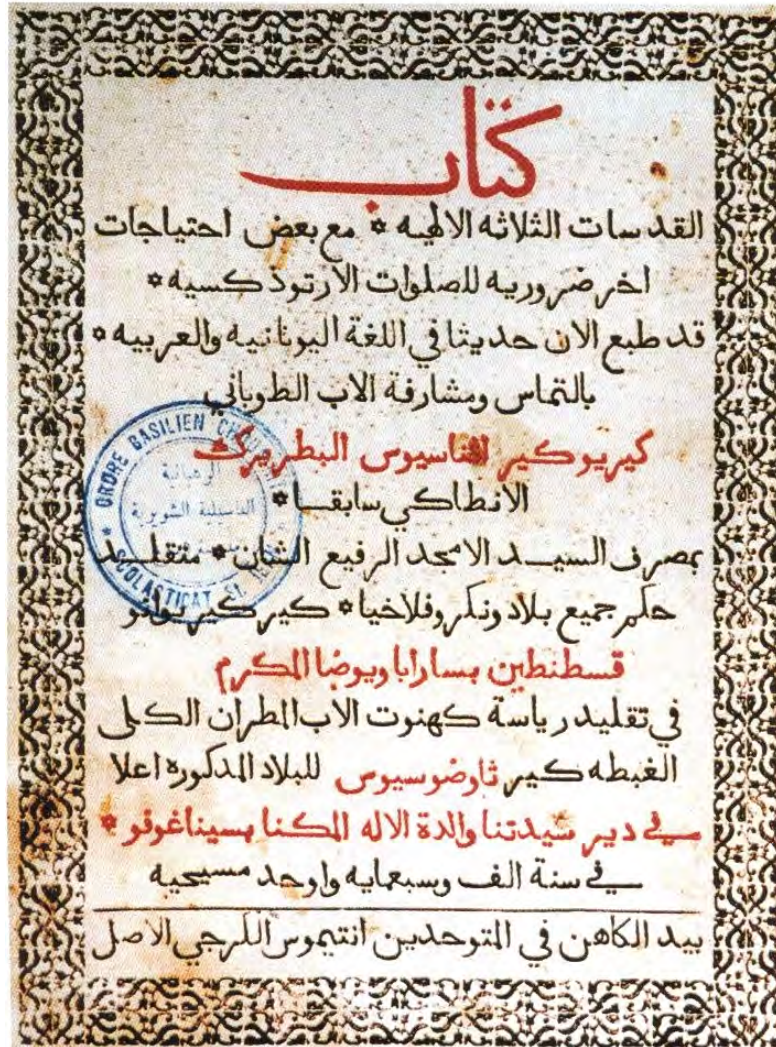 كتاب
القدسات الثلاثه الالهيه * مع بعض احتياجات
اخر ضروريه للصلوات الارتودكسيه *
قد طبع الان حديثا في اللغة اليونانيه والعربيه *
بالتماس ومشارفة الاب الطوباني
كيريو كير اثناسيوس البطريرك
الانطاكي سابقا *
بمصرف السيد الامجد الرفيع الشان * متقلد
حكم جميع بلاد ونكروفلاخيا * كير كير
قسطنطين بسارابا ويوضا المكرم
في تقليد رياسة كهنوت الاب المطران الكلي
الغبطه كير ثاوضوسيوس للبلاد المدكوره اعلا
في دير سيدتنا والدة الاله المكنا بسيناغوفو *
في سنة الف وسبعمايه واوحد مسيحيه
بيد الكاهن في المتوحدين انتيموس الكرجي الاصل
ORDRE BASILIEN
الرهبانية
الباسيلية الشويرية
SCOLASTICAT ST.